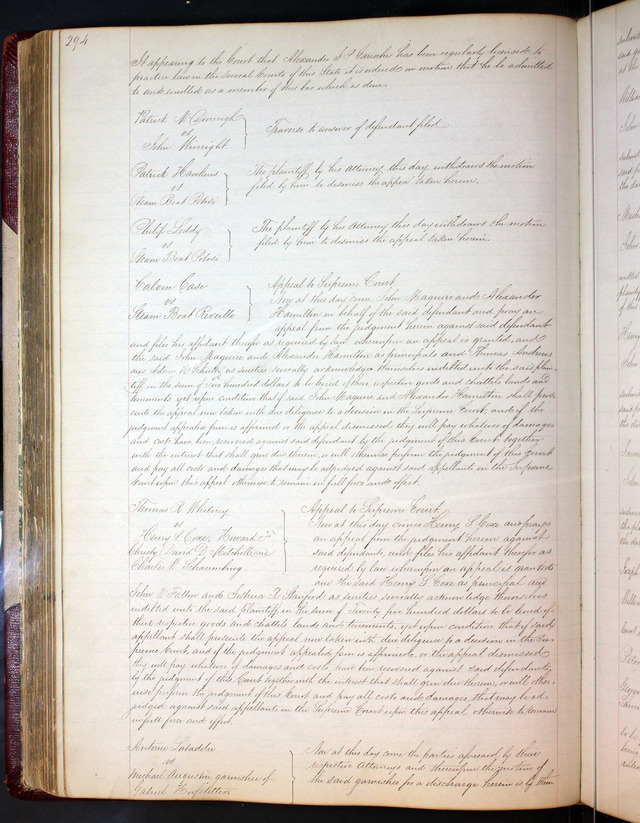 294
It appearing to the Court that Alexander J. P. has been regularly licensed to
practice law in the several Courts of this State it is ordered on motion that he be admitted
to and enrolled as a member of this bar which is done.
Patrick
vs
John
Traverse to answer of defendant filed
Patrick Hawkins
vs
Steam Boat
The plaintiff, by his Attorney, this day withdraws the motion
filed by him to dismiss the appeal taken herein.
Philip Leddy
vs
Steam Boat
The plaintiff by his Attorney this day withdraws the motion
filed by him to dismiss the appeal taken herein.
Calvin Case
vs
Steam Boat Reveille
Appeal to Supreme Court.
Now at this day come John Maguire and Alexander
Hamilton on behalf of the said defendant and pray an
appeal from the judgment herein against said defendant
and files his affidavit therefor as required by law whereupon an appeal is granted, and
the said John Maguire and Alexander Hamilton as principals and Thomas Andrews
and as sureties severally acknowledge themselves indebted unto the said plain-
tiff in the sum of hundred dollars to be levied of their respective goods and chattels lands and
tenements, yet upon condition that if said John Maguire and Alexander Hamilton shall prose-
cute the appeal now taken with due diligence to a decision in the Supreme Court, and if the
judgment appealed from is affirmed or the appeal dismissed they will pay whatever of damages
and costs have been recovered against said defendant by the judgment of this Court together
with the interest that shall grow due thereon, or will otherwise perform the judgment of this Court
and pay all costs and damages that may be adjudged against said appellants in the Supreme
Court upon this appeal otherwise to remain in full force and effect.
Thomas R. Whitney
vs
Henry S Coxe, Howard F
Christy David D. Mitchell and
Charles W. Schaumburg
Appeal to Supreme Court
Now at this day comes Henry S Coxe and prays
an appeal from the judgment herein against
said defendant, and files his affidavit therefor as
required by law whereupon an appeal is granted
and the said Henry S Coxe as principal and
John and Joshua B. as sureties severally acknowledge themselves
indebted unto the said plaintiff in the sum of Twenty five hundred dollars to be levied of
their respective goods and chattels lands and tenements, yet upon condition that if said
appellant shall prosecute the appeal now taken with due diligence to a decision in the Su-
preme Court, and if the judgment appealed from is affirmed, or the appeal dismissed
they will pay whatever of damages and costs have been recovered against said defendants
by the judgment of this Court together with the interest that shall grow due thereon, or will other-
wise perform the judgment of this Court and pay all costs and damages that may be ad-
judged against said appellants in the Supreme Court upon this appeal otherwise to remain
in full force and effect.
Antoine
vs
Michael Augustin garnishee of
Gabriel
Now at this day come the parties aforesaid by their
respective Attorneys and thereupon the motion of
the said garnishee for a discharge herein is by them